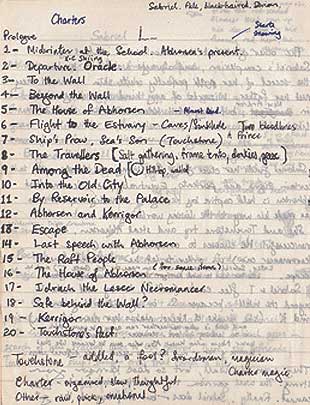 Sabriel. Pale, blackhaired,
Charters Sabriel Starts snowing
Prologue
1 - Midwinter at the School. Abhorsen's present.
X-C Skiing
2 - Departure. Oracle.
3 - To the Wall
4 - Beyond the Wall
5 - The House of Abhorsen - Almost dead
6 - Flight to the Estuary - Caves/Sinkhole Two bloodlines
7 - Ship's Prow, Sea's Son (Touchstone) A Prince
8 - The Travellers [Salt gathering, frame tents, donkies, geese]
9 - Among the Dead [Hilltop, walled
10 - Into the Old City
11 - By Reservoir to the Palace
12 - Abhorsen and Kerrigor
13 - Escape
14 - Last speech with Abhorsen
15 - The Raft People
16 - The House of Abhorsen
17 - Idrach the Lesser Necromancer
18 - Safe behind the Wall?
19 - Kerrigor
20 - Touchstone's Past.
Touchstone - addled, a fool? Swordsman, magician
Charter magic
Charter - organised, slow, thoughtful
Other - raw, emotional